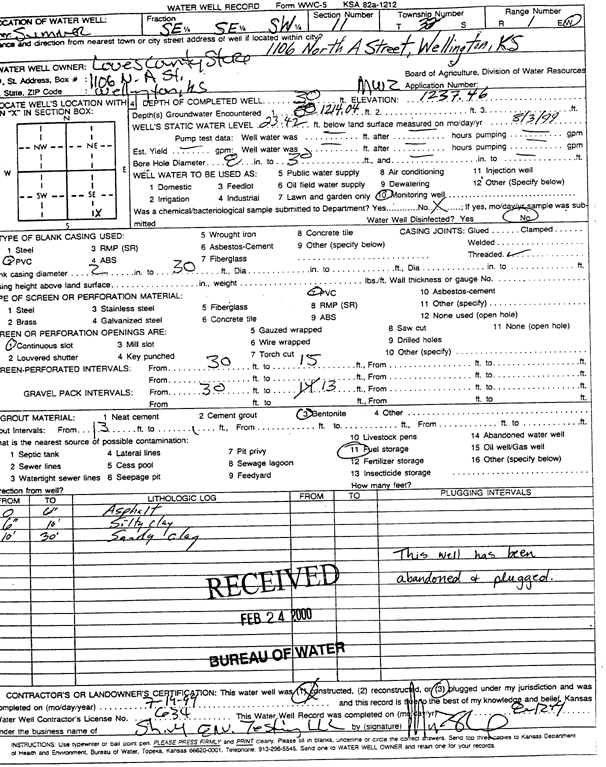 WATER WELL RECORD Form WWC-5 KSA 82a-1212
LOCATION OF WATER WELL: Fraction Section Number Township Number Range Number
Sumner SE ¼ SE ¼ SW ¼ 11 T S R 1 E/W
ance and direction from nearest town or city street address of well if located within city?
1106 North A Street, Wellington, KS
WATER WELL OWNER: Loves Country Store
, St. Address, Box # : 1106 N. A St, Board of Agriculture, Division of Water Resources
State, ZIP Code : Wellington, KS MW2 Application Number:
OCATE WELL'S LOCATION WITH 4 DEPTH OF COMPLETED WELL 30 ft. ELEVATION: 1237.46
N "X" IN SECTION BOX: Depth(s) Groundwater Encountered 1 1214.04 ft. 2. ft. 3. ft.
WELL'S STATIC WATER LEVEL 23.42 ft. below land surface measured on mo/day/yr 8/3/99
Pump test data: Well water was ft. after hours pumping gpm
Est. Yield gpm: Well water was ft. after hours pumping gpm
Bore Hole Diameter 8 in. to 30 ft., and in. to ft.
NW NE
W E
SW SE
X
S
WELL WATER TO BE USED AS: 5 Public water supply 8 Air conditioning 11 Injection well
1 Domestic 3 Feedlot 6 Oil field water supply 9 Dewatering 12 Other (Specify below)
2 Irrigation 4 Industrial 7 Lawn and garden only 10 Monitoring well
Was a chemical/bacteriological sample submitted to Department? Yes No X ; If yes, mo/day/yr sample was sub-
mitted Water Well Disinfected? Yes No
TYPE OF BLANK CASING USED: 5 Wrought iron 8 Concrete tile CASING JOINTS: Glued Clamped
1 Steel 3 RMP (SR) 6 Asbestos-Cement 9 Other (specify below) Welded
2 PVC 4 ABS 7 Fiberglass Threaded
nk casing diameter 2 in. to 30 ft., Dia in. to ft., Dia in. to ft.
sing height above land surface in., weight lbs./ft. Wall thickness or gauge No.
PE OF SCREEN OR PERFORATION MATERIAL: 7 PVC 10 Asbestos-cement
1 Steel 3 Stainless steel 5 Fiberglass 8 RMP (SR) 11 Other (specify)
2 Brass 4 Galvanized steel 6 Concrete tile 9 ABS 12 None used (open hole)
REEN OR PERFORATION OPENINGS ARE: 5 Gauzed wrapped 8 Saw cut 11 None (open hole)
1 Continuous slot 3 Mill slot 6 Wire wrapped 9 Drilled holes
2 Louvered shutter 4 Key punched 7 Torch cut 10 Other (specify)
REEN-PERFORATED INTERVALS: From 30 ft. to 15 ft., From ft. to ft.
From ft. to ft., From ft. to ft.
GRAVEL PACK INTERVALS: From 30 ft. to 13 ft., From ft. to ft.
From ft. to ft., From ft. to ft.
GROUT MATERIAL: 1 Neat cement 2 Cement grout 3 Bentonite 4 Other
out Intervals: From 13 ft. to 1 ft., From ft. to ft., From ft. to ft.
hat is the nearest source of possible contamination: 10 Livestock pens 14 Abandoned water well
1 Septic tank 4 Lateral lines 7 Pit privy 11 Fuel storage 15 Oil well/Gas well
2 Sewer lines 5 Cess pool 8 Sewage lagoon 12 Fertilizer storage 16 Other (specify below)
3 Watertight sewer lines 6 Seepage pit 9 Feedyard 13 Insecticide storage
rection from well? How many feet?
FROM TO LITHOLOGIC LOG FROM TO PLUGGING INTERVALS
0 6" Asphalt
6" 10' Silty clay
10' 30' Sandy clay
This well has been
abandoned & plugged.
RECEIVED
FEB 24 2000
BUREAU OF WATER
CONTRACTOR'S OR LANDOWNER'S CERTIFICATION: This water well was (1) constructed, (2) reconstructed, or (3) plugged under my jurisdiction and was
ompleted on (mo/day/year) 7-19-99 and this record is true to the best of my knowledge and belief. Kansas
ater Well Contractor's License No. 634 This Water Well Record was completed on (mo/day/yr)
nder the business name of by (signature)
INSTRUCTIONS: Use typewriter or ball point pen. PLEASE PRESS FIRMLY and PRINT clearly. Please fill in blanks, underline or circle the correct answers. Send top three copies to Kansas Department
of Health and Environment, Bureau of Water, Topeka, Kansas 66620-0001. Telephone: 913-296-5545. Send one to WATER WELL OWNER and retain one for your records.